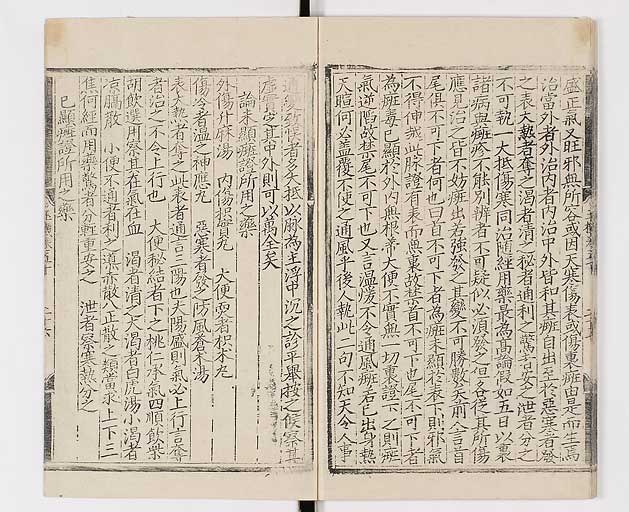 盛正氣又旺邪無所容或因天寒傷表或傷裏癍由是而生焉
治當外者外治內者內治中外皆和其癍自出至於惡寒者發
之表大熱者奪之渴者清之秘者通利之驚者安之泄者分之
不可執一大抵傷寒同治隨經用藥最為高論假如五日以裏
諸病與癍疹不能別辨者不可疑似必須發之但各從其所傷
應見治之皆不妨癍出若強發之其變不可勝數矣前人言首
尾俱不可下者何也曰首不可下者為癍未顯於表下則邪氣
不得伸越此脉證有表而無裏故禁首不可下也尾不可下者
為癍毒已顯於外內無根蒂大便不實無一切裏證下之則癍
氣逆陷故禁尾不可下也又言溫暖不令通風癍若已出身熱
天暄何必蓋覆不使之通風乎後人執此二句不知天令人事
適變為候者多矣大抵以脉為主浮中沉之診平舉按之候察其
虛實定其中外則可以萬全矣
論未顯癍證所用之藥
外傷升麻湯 內傷枳實丸 大便耎者枳朮丸
傷冷者溫之神應丸 惡寒者發之防風蒼朮湯
表大熱者奪之此表者通言三陽也夫陽盛則氣必上行言奪
者治之不令上行也 大便秘結者下之桃仁承氣四順飲柴
胡飲選用察其在氣在血 渴者清之大渴者白虎湯小渴者
涼膈散 小便不通者利之導赤散八正散之類當求上下二
焦何經而用藥驚者分輕重安之 泄者察寒熱分之
已顯癍證所用之藥